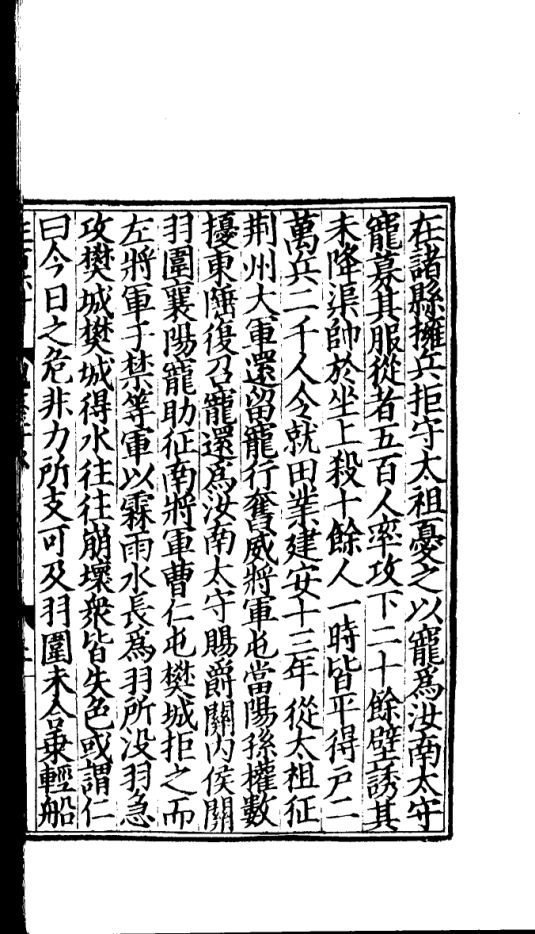 在諸縣擁兵拒守太祖憂之以寵爲汝南太守
寵募其服從者五百人率攻下二十餘壁誘其
未降渠帥於坐上殺十餘人一時皆平得戶二
萬兵二千人令就田業建安十三年從太祖征
荆州大軍還留寵行奮威將軍屯當陽孫權數
擾東陲復召寵還爲汝南太守賜爵關內侯關
羽圍襄陽寵助征南將軍曹仁屯樊城拒之而
左將軍于禁等軍以霖雨水長爲羽所没羽急
攻樊城樊城得水往往崩壞衆皆失色或謂仁
曰今日之危非力所支可及羽圍未合乗輕船